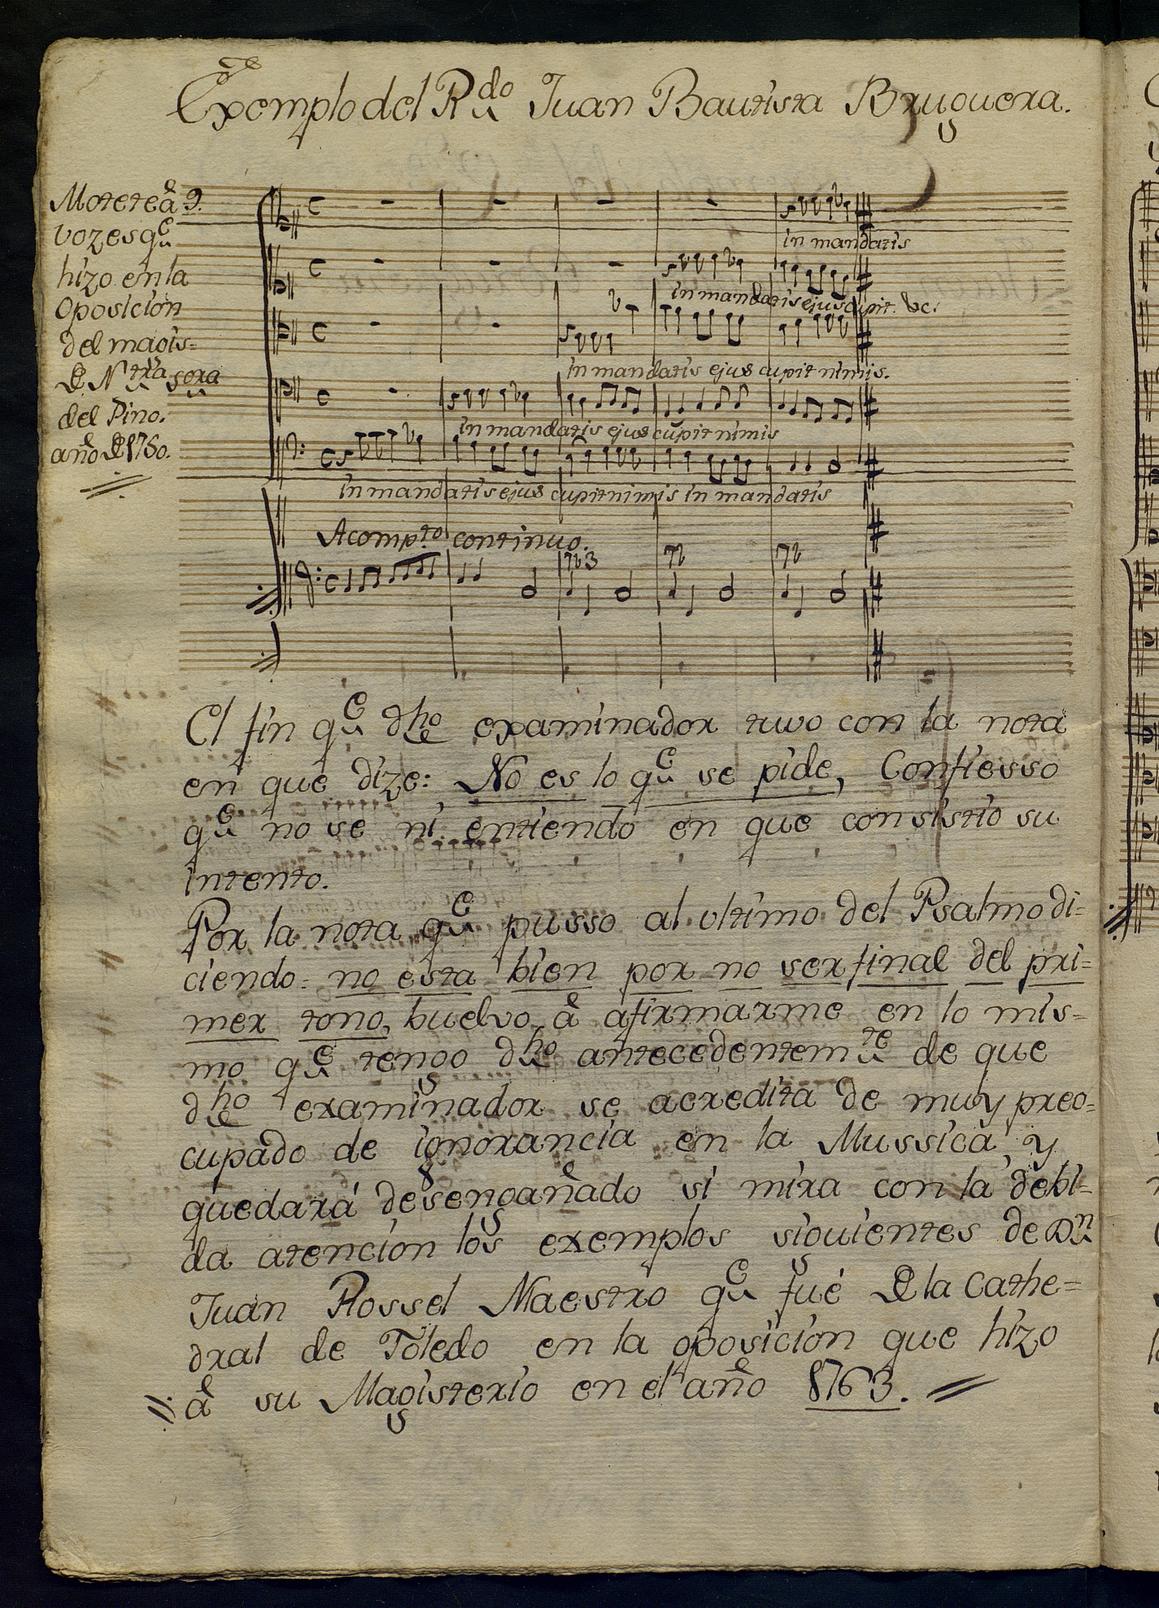 Exemplo del Rdo Juan Bautista Bruguera.
Motete â 9.
vozes qe
hizo en la
oposicion
del magis=
de Ntra sora
del Pino.
año de 1760.
in mandatis
in mandatis ejus cupit. &c.
in mandatis ejus cupit nimis.
in mandatis ejus cupit nimis
in mandatis ejus cupit nimis in mandatis
Acompto continuo.
El fin qe dho examinador tuvo con la nota
en que dize: No es lo qe se pide, Confiesso
qe no se ni entiendo en que consistio su
intento.
Por la nota qe pusso al ultimo del Psalmo di=
ciendo: no esta bien por no ser final del pri=
mer tono, buelvo â afirmarme en lo mis=
mo qe tengo dho antecedentemte de que
dho examinador se acredita de muy preo=
cupado de ignorancia en la Mussica, y
quedará desengañado si mira con la debi=
da atencion los exemplos siguientes de Dn
Juan Rossel Maestro qe fué de la Cathe=
dral de Toledo en la oposicion que hizo
â su Magisterio en el año 1763.